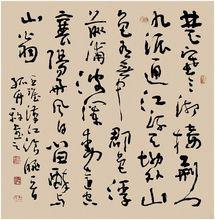 楚塞三湘接荆门
九派通江流天地外山
色有无中郡邑浮
前浦波澜动远空
襄阳好风日留醉与
山翁
王维汉江临眺